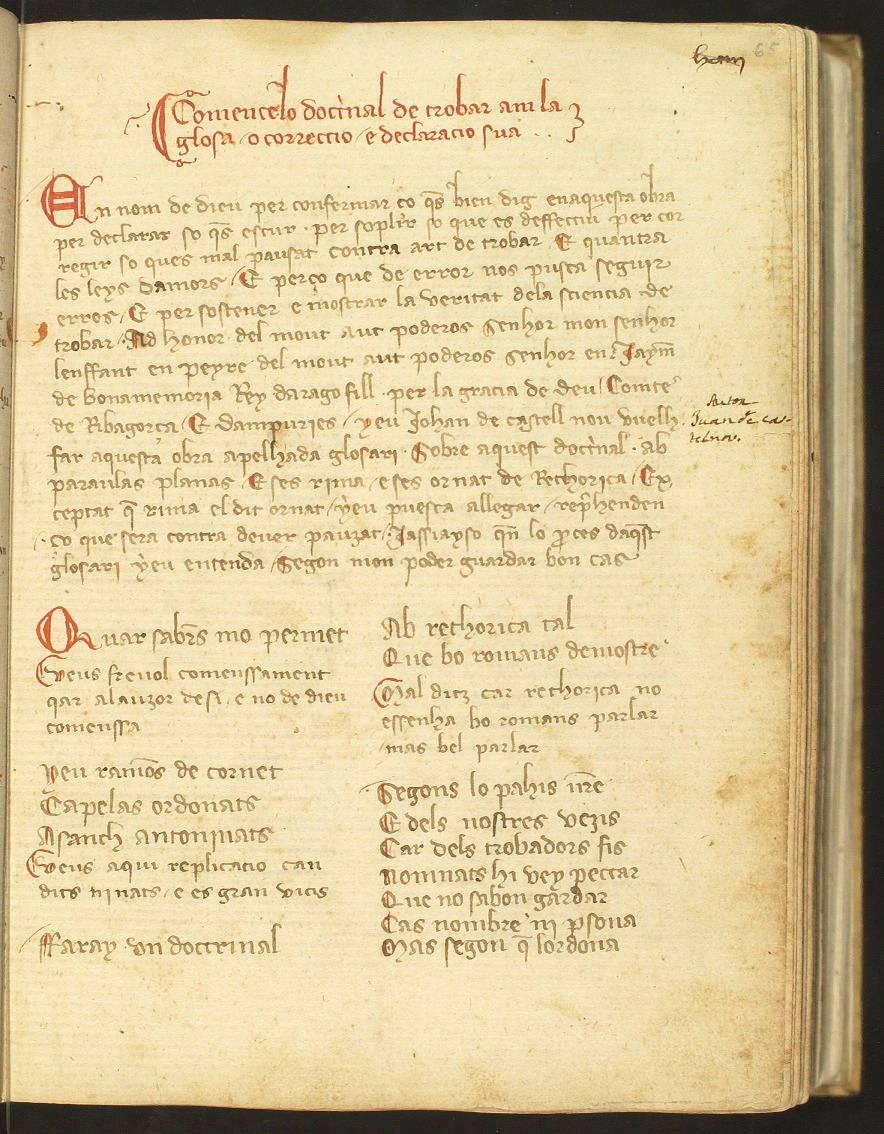 65
Comencelo doctⁱnal de trobar am la
glosa / o correctio / e declaracio sua . .
En nom de dieu per confermar ço q̄s bien dig enaquesta obra
per declarar so q̄s escur · per soplir so que es deffectiu per cor
regir so ques mal pausat contra art de trobar / E quantra
les leys damors / E perço que de error nos pusca seguir
errors / E per sostener e mostrar la veritat dela sciencia de
trobar · Ad honor del mout aut poderos senhor mon senhor
lenffant en peyre del mout aut poderos senhor en Jaym̄
de bonamemoria Rey darago fill · per la gracia de deu / Comte
de Ribagorça / E dampuries / yeu Johan de castell nou vuelh
far aquesta obra apelhada glosari · Sobre aquest doctⁱnal · ab
paraulas planas / E ses rima / e ses ornat de Rethorica / Ex
ceptat q̄ rima el dit ornat / yeu puesca allegar / rep̄henden
ço que sera contra dever pauzat / Jassiayso qn̄ lo ꝓces daq̄st
glosari yeu entenda / Segon mon poder guardar bon cas
Autor
Juan de Cas-
telnou.
Quar sab̄rs mo permet
Veus frevol comenssament
qar alauzor desi / e no de dieu
comenssa
yeu ramōs de cornet
Capelas ordonats
Asanch antoninats
Veus aqui replicatio can
dits ninats / e es gran vicis
Ffaray un doctrinal
Ab rethorica tal
Que bo romans demostre
Mal ditz car rethorica no
essenha bo romans parlar
mas bel parlar
Segons lo pahis nr̄e
E dels nostres vezis
Car dels trobadors fis
nomnats hi vey peccar
Que no sabon gardar
Cas nombre ni ꝑsona
Mas segon q̄ lordona